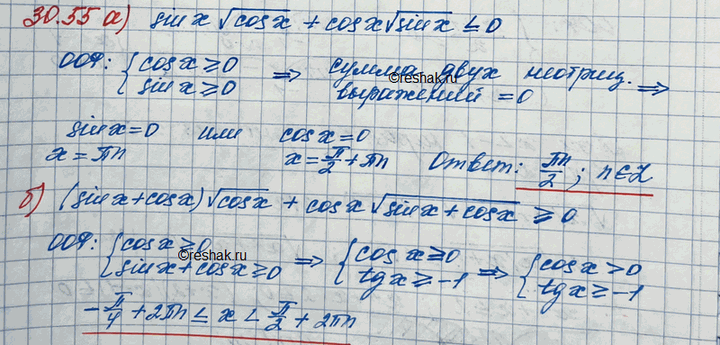 30.55 а) sin x √cos x + cos x √sin x ≤ 0
ООФ: { cos x ≥ 0 sin x ≥ 0 ⇒ сумма двух неотриц. выражений = 0 ⇒
reshak.ru
sin x = 0 или cos x = 0
x = πn x = π/2 + πn Ответ: πn/2 ; n ∈ Z
б) (sin x + cos x) √cos x + cos x √sin x + cos x ≥ 0
ООФ: { cos x ≥ 0 sin x + cos x ≥ 0 ⇒ { cos x ≥ 0 tg x ≥ -1 ⇒ { cos x > 0 tg x ≥ -1
©reshak.ru
-π/4 + 2πn ≤ x < π/2 + 2πn